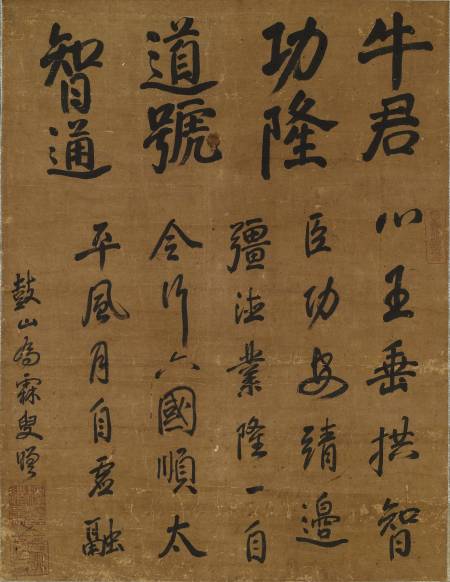 牛君
功隆
道號
智通
心王垂拱智
臣功安靖邊
疆業隆一自
令行六國順太
平風月自虛融
鼓山為霖叟